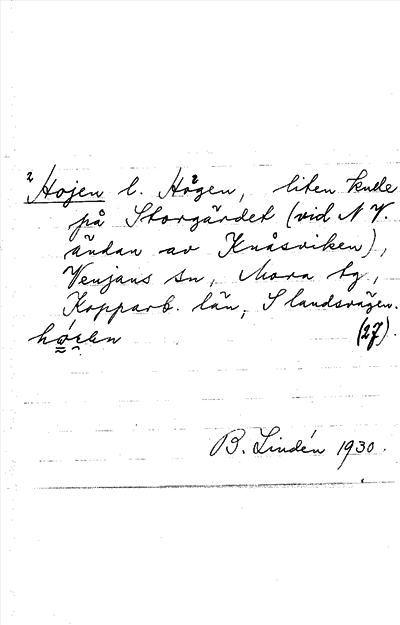 2 Hojen l. Högen, liten kulle
på Storgärdet (vid N V.
ändan av Knåsviken),
Venjans sn, Mora tg,
Kopparb. län, S landsvägen.
(27).
B. Lindén 1930.